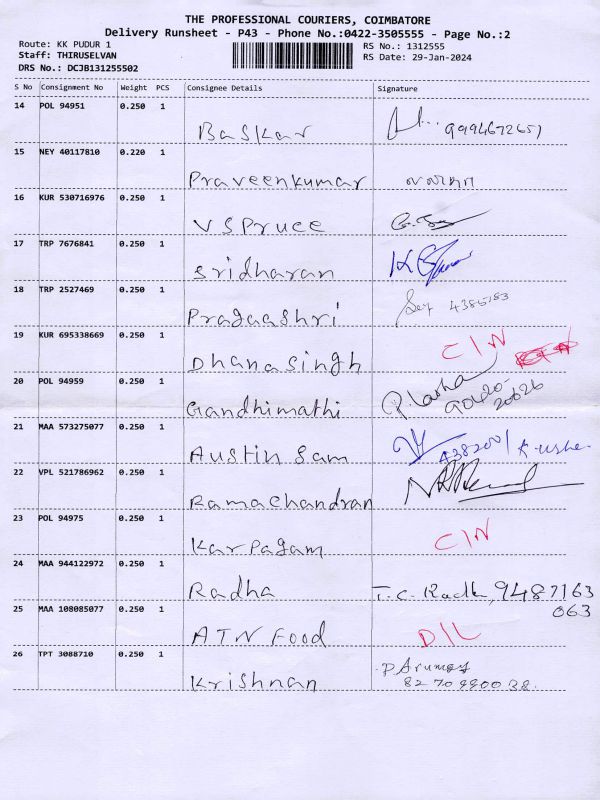 THE PROFESSIONAL COURIERS, COIMBATORE
Delivery Runsheet - P43 - Phone No.:0422-3505555 - Page No.:2
Route: KK PUDUR 1
RS No.: 1312555
Staff: THIRUSELVAN
RS Date: 29-Jan-2024
DRS No.: DCJB131255502
S No Consignment No Weight PCS Consignee Details Signature
14 POL 94951 0.250 1
Baskar 9994672651
15 NEY 40117810 0.220 1
Praveenkumar
16 KUR 530716976 0.250 1
VSPruce
17 TRP 7676841 0.250 1
Sridharan
18 TRP 2527469 0.250 1
Pragaashri
19 KUR 695338669 0.250 1
Dhanasingh C/N
20 POL 94959 0.250 1
Gandhimathi
21 MAA 573275077 0.250 1
Austin Sam
22 VPL 521786962 0.250 1
Ramachandran
23 POL 94975 0.250 1
Karpagam C/N
24 MAA 944122972 0.250 1
Radha T.C. Radh, 9487163
063
25 MAA 108085077 0.250 1
ATN Food D/L
26 TPT 3088710 0.250 1
Krishnan